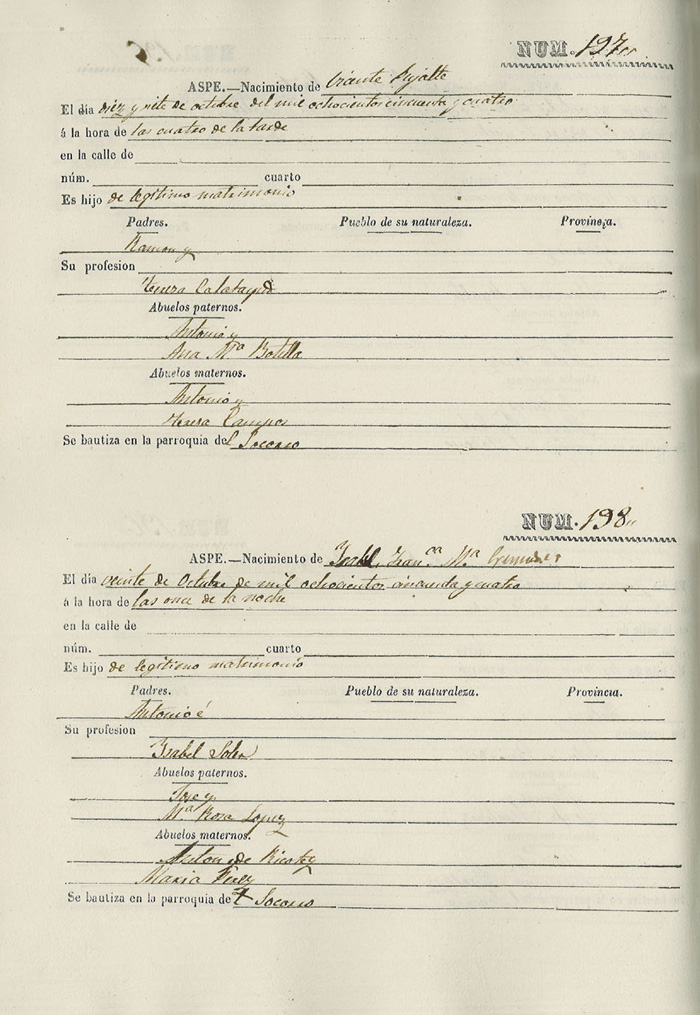 NUM. 197
ASPE.—Nacimiento de Vicente
El día diez y siete de octubre del mil ochocientos cincuenta y cuatro
á la hora de las cuatro de la tarde
en la calle de
núm. cuarto
Es hijo de legitimo matrimonio
Padres. Pueblo de su naturaleza. Provincia.
Ramon y
Su profesion
Teresa Calatayud
Abuelos paternos.
Antonio y
Ana Mª Botella
Abuelos maternos.
Antonio y
Teresa Campos
Se bautiza en la parroquia del Socorro
NUM. 198
ASPE.—Nacimiento de Isabel, Franca Mª
El día veinte de Octubre de mil ochocientos cincuenta y cuatro
á la hora de las once de la noche
en la calle de
núm. cuarto
Es hijo de legitimo matrimonio
Padres. Pueblo de su naturaleza. Provincia.
Antonio é
Su profesion
Isabel Soler
Abuelos paternos.
Jose y
Mª Rosa Lopez
Abuelos maternos.
Anton de
Maria Perez
Se bautiza en la parroquia del Socorro